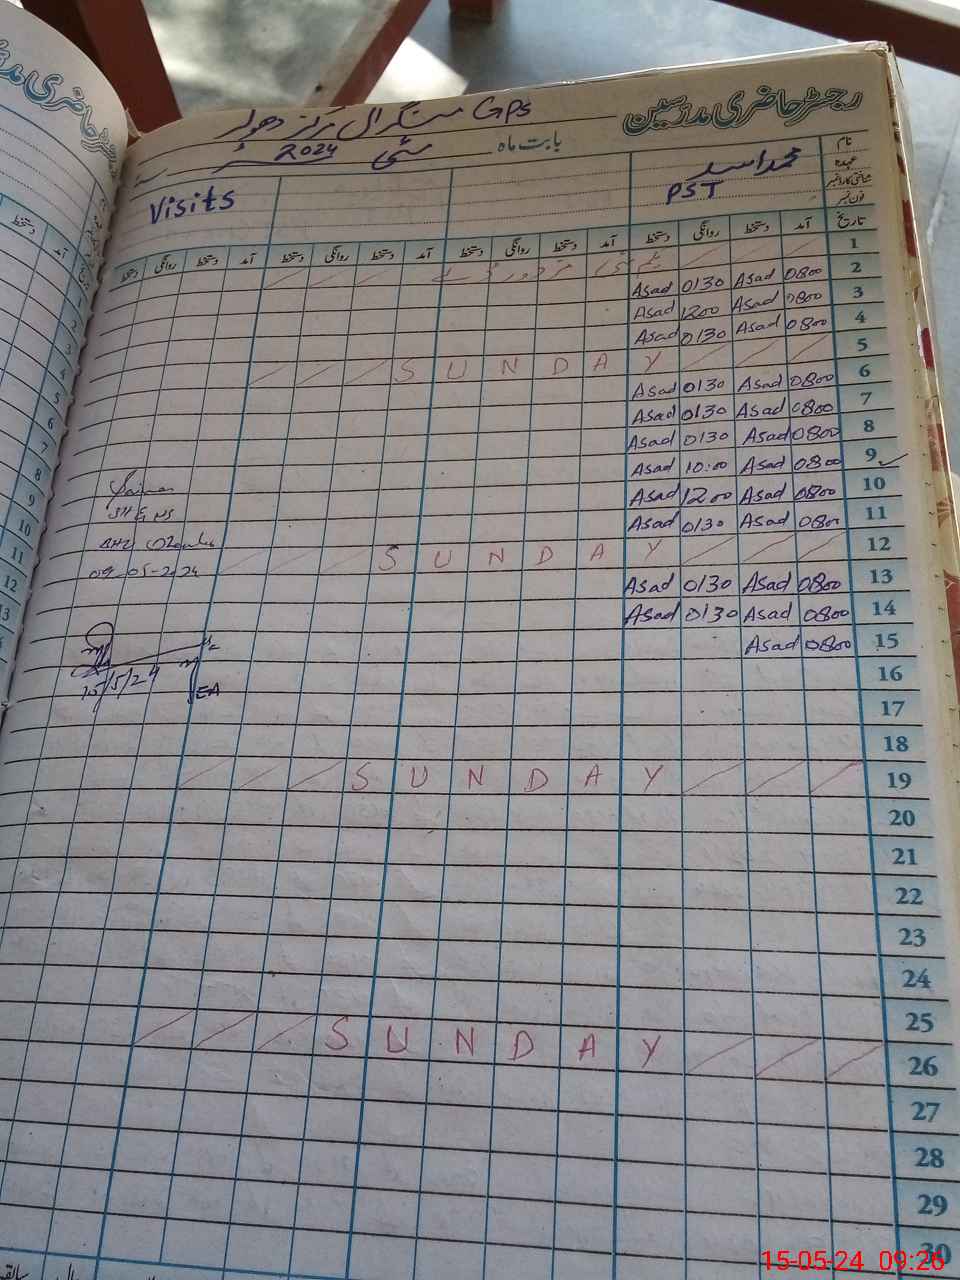 رجسٹر حاضری مدرسین
GPS سنگرال مرکز دھولر
بابت ماہ مئی 2024
نام محمد اسد Visits
عہدہ PST
شناختی کارڈ نمبر
فون نمبر
تاریخ آمد دستخط روانگی دستخط آمد دستخط روانگی دستخط آمد دستخط روانگی دستخط
1 یکم مئی مزدور ڈے
2 0800 Asad 0130 Asad
3 0800 Asad 1200 Asad
4 0800 Asad 0130 Asad
5 SUNDAY
6 0800 Asad 0130 Asad
7 0800 Asad 0130 Asad
8 0800 Asad 0130 Asad
9 0800 Asad 10:00 Asad
10 0800 Asad 1200 Asad
11 0800 Asad 0130 Asad
12 SUNDAY
09-05-2024
13 0800 Asad 0130 Asad
14 0800 Asad 0130 Asad
15 0800 Asad
15/5/24
16
17
18
19 SUNDAY
20
21
22
23
24
25
26 SUNDAY
27
28
29
30
15-05-24 09:26